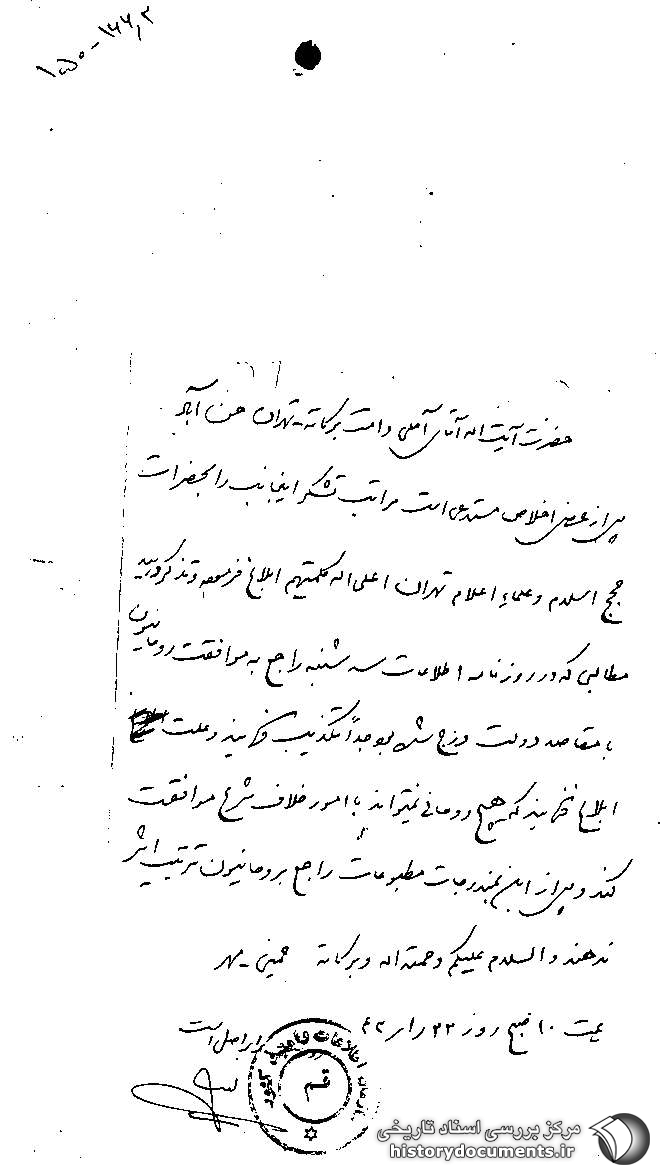 ۱۵۰-۱۶۶٫۲
حضرت آیت اله آقای آملی دامت برکاته - تهران حسن آباد
پس از عرض اخلاص مستدعی است مراتب تشکر اینجانب را بحضرات
حجج اسلام و علماء اعلام تهران اعلی اله کلمتهم ابلاغ فرموده و تذکر دهید
مطالبی که در روزنامه اطلاعات سه شنبه راجع به موافقت روحانیون
با مقاصد دولت درج شده بوده جداً تکذیب فرمایند و بملت
ابلاغ فرمایند که هیچ روحانی نمیتواند با امور خلاف شرع موافقت
کند و پس از این بمندرجات مطبوعات راجع بروحانیون ترتیب اثر
ندهند والسلام علیکم و رحمته اله و برکاته خمینی - مهر
۱۰ صبح روز ۲۲ ر ۴۲
برابر اصل است
سازمان اطلاعات و امنیت کشور
قم
مرکز بررسی اسناد تاریخی
historydocuments.ir